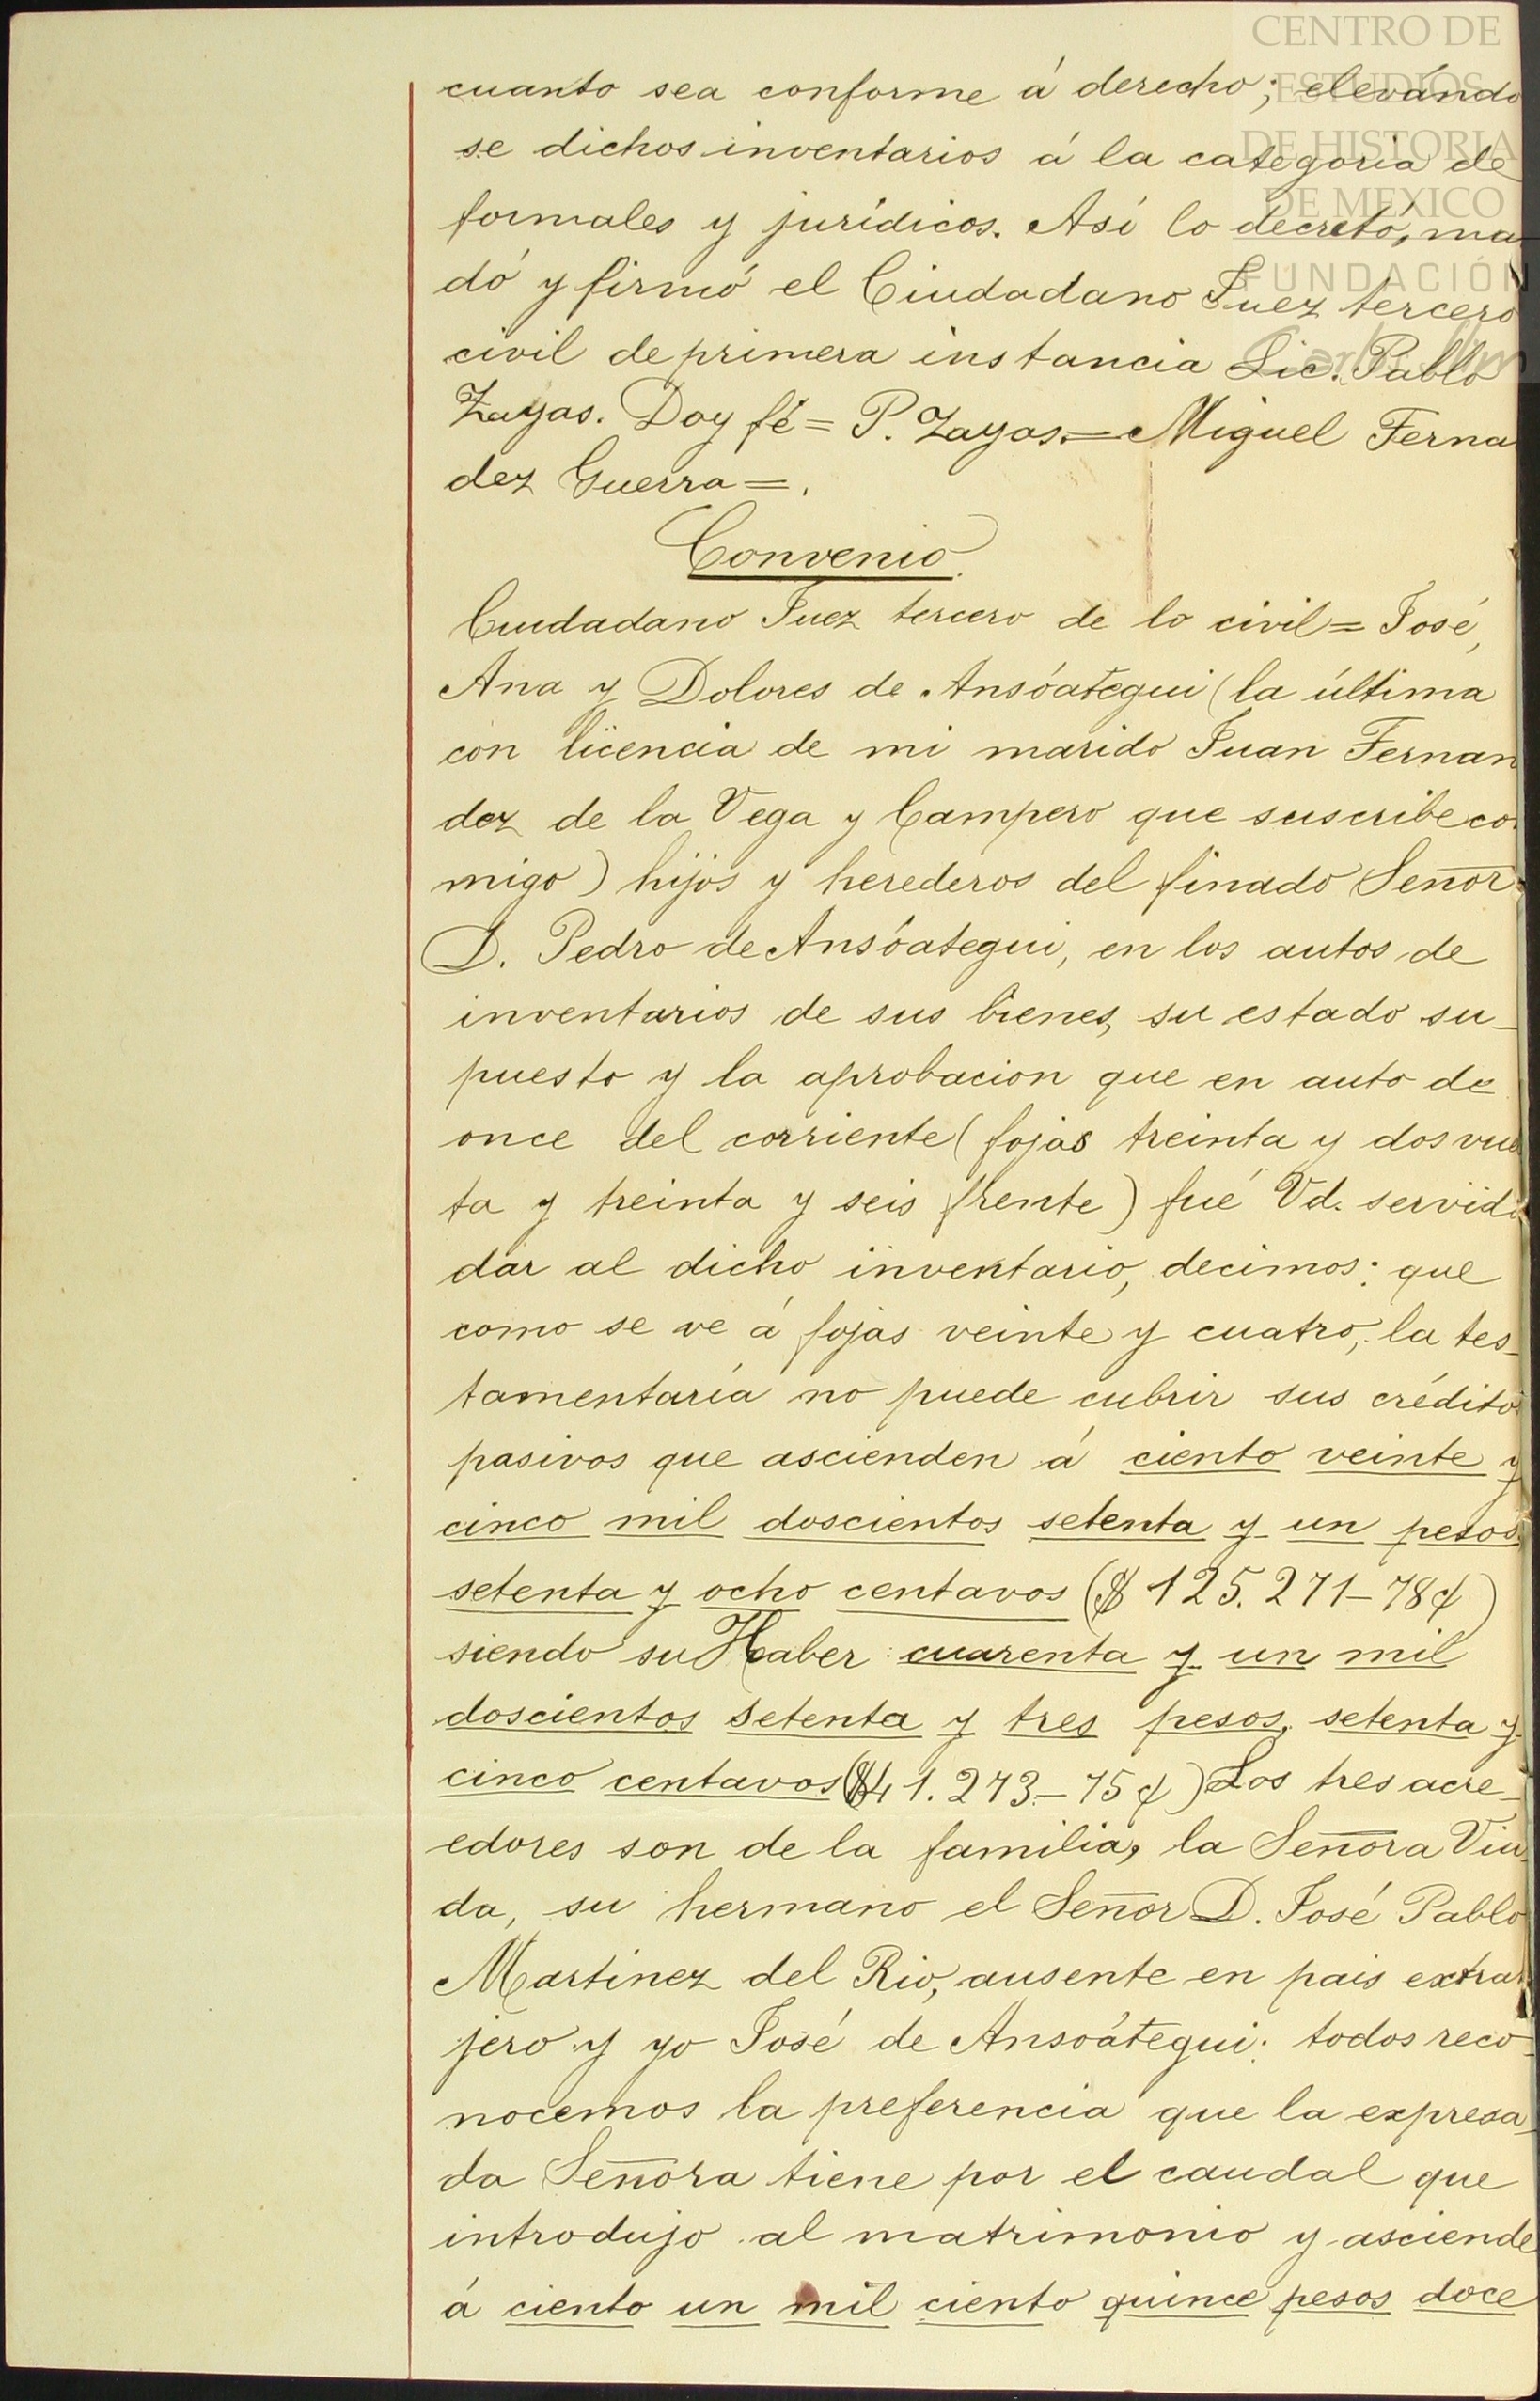 CENTRO DE
ESTUDIOS
DE HISTORIA
DE MEXICO
FUNDACIÓN
cuanto sea conforme á derecho; elevándo
se dichos inventarios á la categoria de
formales y jurídicos. Así lo decretó, ma
dó y firmó el Ciudadano Juez tercero
civil de primera instancia Lic. Pablo
Zayas. Doy fé = P. Zayas. = Miguel Ferna
dez Guerra = .
Convenio.
Ciudadano Juez tercero de lo civil = José,
Ana y Dolores de Ansóategui (la última
con licencia de mi marido Juan Fernan
dez de la Vega y Campero que suscribe co
migo) hijos y herederos del finado Señor
D. Pedro de Ansóategui, en los autos de
inventarios de sus bienes, su estado su-
puesto y la aprobacion que en auto de
once del corriente (fojas treinta y dos vuel
ta y treinta y seis frente) fué Vd. servido
dar al dicho inventario, decimos: que
como se ve á fojas veinte y cuatro, la tes-
tamentaría no puede cubrir sus crédito
pasivos que ascienden á ciento veinte y
cinco mil doscientos setenta y un pesos
setenta y ocho centavos ($ 125.271-78¢)
siendo su Haber cuarenta y un mil
doscientos setenta y tres pesos, setenta y
cinco centavos ($41.273-75¢) Los tres acre-
edores son de la familia, la Señora Viu
da, su hermano el Señor D. José Pablo
Martinez del Rio, ausente en pais extran
jero y yo José de Ansoátegui: todos reco-
nocemos la preferencia que la expresa-
da Señora tiene por el caudal que
introdujo al matrimonio y asciende
á ciento un mil ciento quince pesos doce